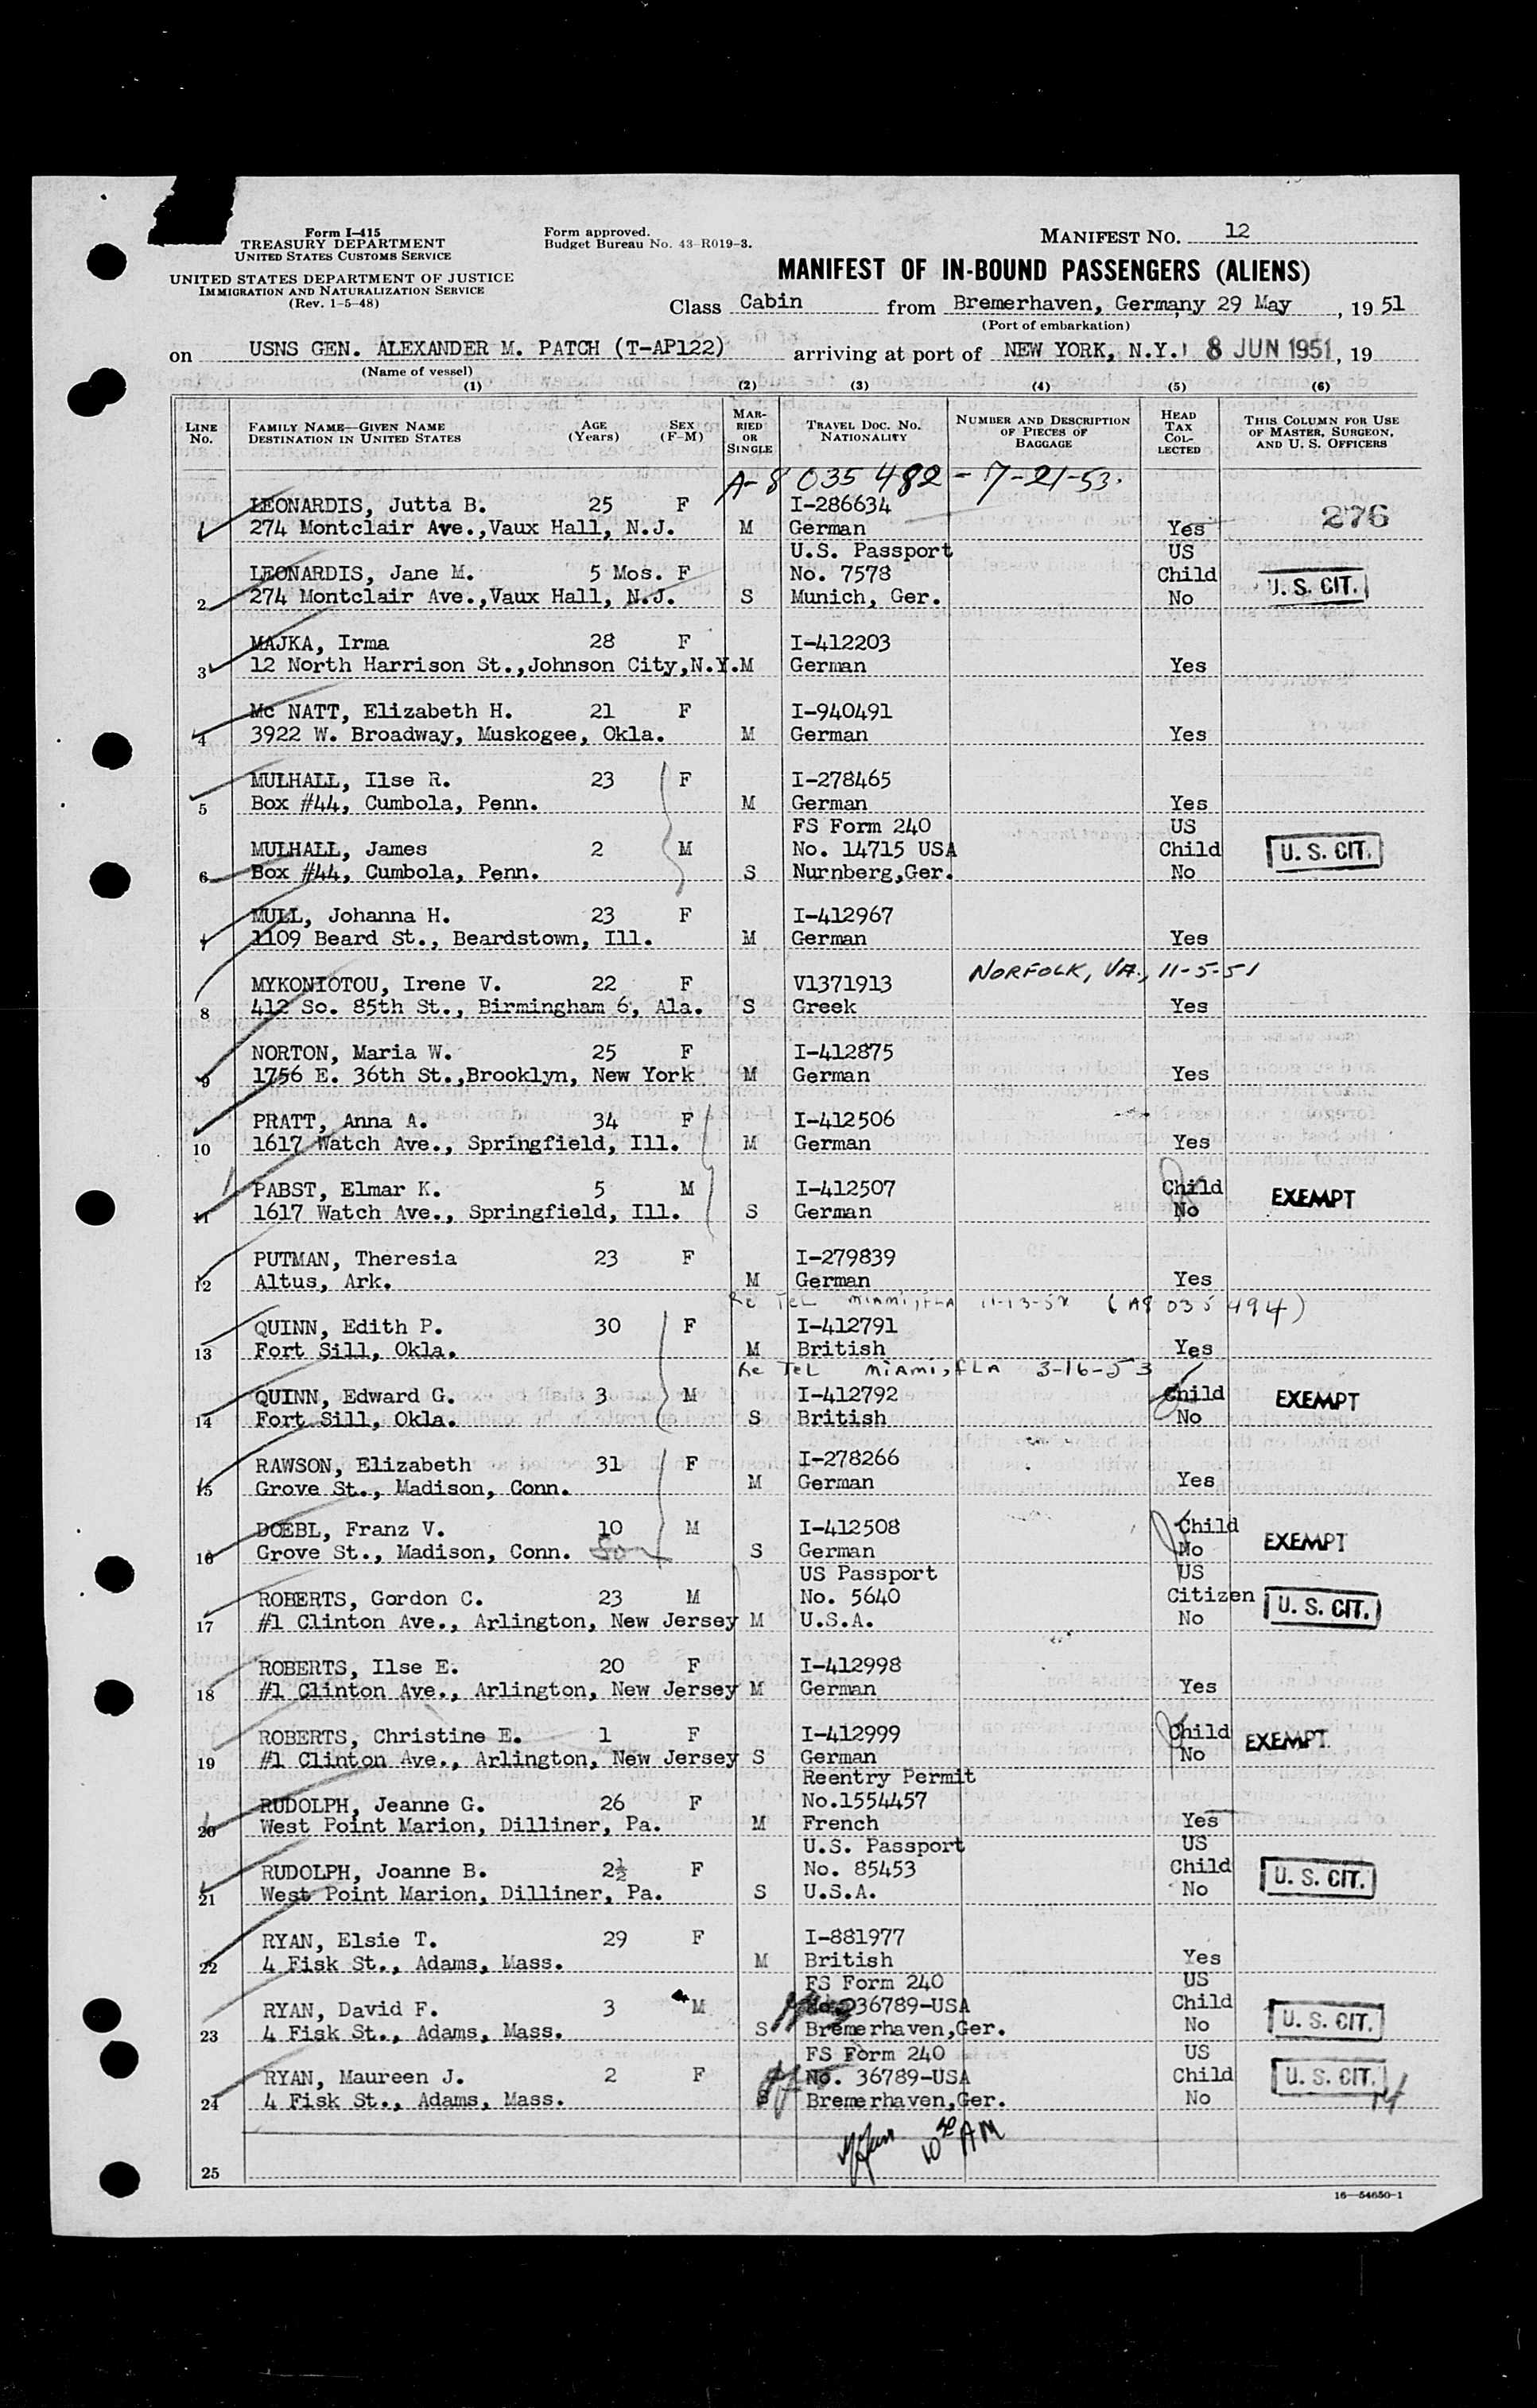 Form I-415
TREASURY DEPARTMENT
UNITED STATES CUSTOMS SERVICE
UNITED STATES DEPARTMENT OF JUSTICE
IMMIGRATION AND NATURALIZATION SERVICE
(Rev. 1-5-48)
Form approved.
Budget Bureau No. 43-R019-3.
MANIFEST NO. 12
MANIFEST OF IN-BOUND PASSENGERS (ALIENS)
Class Cabin from Bremerhaven, Germany 29 May, 19 51
(Port of embarkation)
on USNS GEN. ALEXANDER M. PATCH (T-AP122) arriving at port of NEW YORK, N.Y. 8 JUN 1951, 19
(Name of vessel)
(1) (2) (3) (4) (5) (6)
LINE No. FAMILY NAME—GIVEN NAME DESTINATION IN UNITED STATES AGE (Years) SEX (F-M) MARRIED OR SINGLE TRAVEL DOC. NO. NATIONALITY NUMBER AND DESCRIPTION OF PIECES OF BAGGAGE HEAD TAX COLLECTED THIS COLUMN FOR USE OF MASTER, SURGEON, AND U. S. OFFICERS
A-8 035 482 - 7-21-53.
LEONARDIS, Jutta B. 25 F I-286634 276
1 274 Montclair Ave.,Vaux Hall, N.J. M German Yes
U.S. Passport US
LEONARDIS, Jane M. 5 Mos. F No. 7578 Child U. S. CIT.
2 274 Montclair Ave.,Vaux Hall, N.J. S Munich, Ger. No
MAJKA, Irma 28 F I-412203
3 12 North Harrison St.,Johnson City,N.Y. M German Yes
Mc NATT, Elizabeth H. 21 F I-940491
4 3922 W. Broadway, Muskogee, Okla. M German Yes
MULHALL, Ilse R. 23 F I-278465
5 Box #44, Cumbola, Penn. M German Yes
FS Form 240 US
MULHALL, James 2 M No. 14715 USA Child U. S. CIT.
6 Box #44, Cumbola, Penn. S Nurnberg,Ger. No
MULL, Johanna H. 23 F I-412967
7 1109 Beard St., Beardstown, Ill. M German Yes
NORFOLK, VA., 11-5-51
MYKONIOTOU, Irene V. 22 F V1371913
8 412 So. 85th St., Birmingham 6, Ala. S Greek Yes
NORTON, Maria W. 25 F I-412875
9 1756 E. 36th St.,Brooklyn, New York M German Yes
PRATT, Anna A. 34 F I-412506
10 1617 Watch Ave., Springfield, Ill. M German Yes
PABST, Elmar K. 5 M I-412507 Child EXEMPT
11 1617 Watch Ave., Springfield, Ill. S German No
PUTMAN, Theresia 23 F I-279839
12 Altus, Ark. M German Yes
Re Tel MIAMI, FLA 11-13-52 (A8 035 494)
QUINN, Edith P. 30 F I-412791
13 Fort Sill, Okla. M British Yes
Re Tel MIAMI, FLA 3-16-53
QUINN, Edward G. 3 M I-412792 Child EXEMPT
14 Fort Sill, Okla. S British No
RAWSON, Elizabeth 31 F I-278266
15 Grove St., Madison, Conn. M German Yes
DOEBL, Franz V. 10 M I-412508 Child EXEMPT
16 Grove St., Madison, Conn. Son S German No
US Passport US
ROBERTS, Gordon C. 23 M No. 5640 Citizen U. S. CIT.
17 #1 Clinton Ave., Arlington, New Jersey M U.S.A. No
ROBERTS, Ilse E. 20 F I-412998
18 #1 Clinton Ave., Arlington, New Jersey M German Yes
ROBERTS, Christine E. 1 F I-412999 Child EXEMPT
19 #1 Clinton Ave., Arlington, New Jersey S German No
Reentry Permit
RUDOLPH, Jeanne G. 26 F No.1554457
20 West Point Marion, Dilliner, Pa. M French Yes
U.S. Passport US
RUDOLPH, Joanne B. 2½ F No. 85453 Child U. S. CIT.
21 West Point Marion, Dilliner, Pa. S U.S.A. No
RYAN, Elsie T. 29 F I-881977
22 4 Fisk St., Adams, Mass. M British Yes
FS Form 240 US
RYAN, David F. 3 M 36789-USA Child U. S. CIT.
23 4 Fisk St., Adams, Mass. S Bremerhaven,Ger. No
FS Form 240 US
RYAN, Maureen J. 2 F No. 36789-USA Child U. S. CIT.
24 4 Fisk St., Adams, Mass. S Bremerhaven,Ger. No
10 30 AM
25
16—54650-1